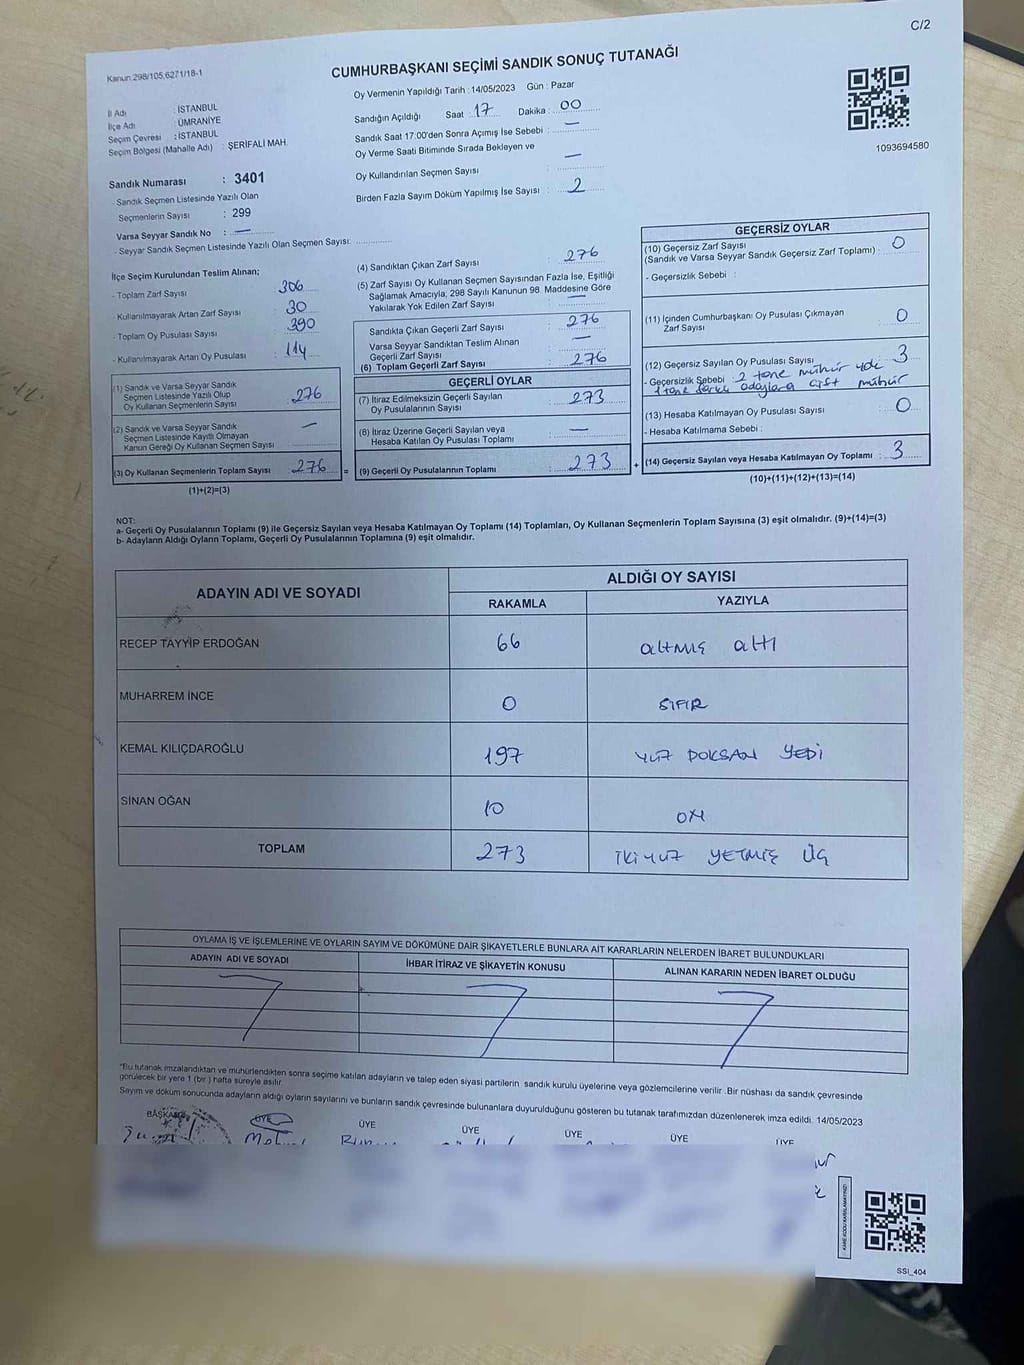 C/2
Kanun 298/105,6271/18-1
CUMHURBAŞKANI SEÇİMİ SANDIK SONUÇ TUTANAĞI
İl Adı : İSTANBUL
İlçe Adı : ÜMRANİYE
Seçim Çevresi : İSTANBUL
Seçim Bölgesi (Mahalle Adı) : ŞERİFALİ MAH.
Sandık Numarası : 3401
Sandık Seçmen Listesinde Yazılı Olan
Seçmenlerin Sayısı : 299
Varsa Seyyar Sandık No : —
- Seyyar Sandık Seçmen Listesinde Yazılı Olan Seçmen Sayısı:
Oy Vermenin Yapıldığı Tarih : 14/05/2023 Gün : Pazar
Sandığın Açıldığı Saat 17 Dakika : 00
Sandık Saat 17:00'den Sonra Açımış İse Sebebi : —
Oy Verme Saati Bitiminde Sırada Bekleyen ve
Oy Kullandırılan Seçmen Sayısı : —
Birden Fazla Sayım Döküm Yapılmış İse Sayısı : 2
1093694580
İlçe Seçim Kurulundan Teslim Alınan;
- Toplam Zarf Sayısı : 306
- Kullanılmayarak Artan Zarf Sayısı : 30
- Toplam Oy Pusulası Sayısı : 390
- Kullanılmayarak Artan Oy Pusulası : 114
(1) Sandık ve Varsa Seyyar Sandık
Seçmen Listesinde Yazılı Olup
Oy Kullanan Seçmenlerin Sayısı : 276
(2) Sandık ve Varsa Seyyar Sandık
Seçmen Listesinde Kayıtlı Olmayan
Kanun Gereği Oy Kullanan Seçmen Sayısı : —
(3) Oy Kullanan Seçmenlerin Toplam Sayısı : 276
(1)+(2)=(3)
(4) Sandıktan Çıkan Zarf Sayısı : 276
(5) Zarf Sayısı Oy Kullanan Seçmen Sayısından Fazla İse, Eşitliği
Sağlamak Amacıyla, 298 Sayılı Kanunun 98. Maddesine Göre
Yakılarak Yok Edilen Zarf Sayısı : —
Sandıkta Çıkan Geçerli Zarf Sayısı : 276
Varsa Seyyar Sandıktan Teslim Alınan
Geçerli Zarf Sayısı : —
(6) Toplam Geçerli Zarf Sayısı : 276
GEÇERLİ OYLAR
(7) İtiraz Edilmeksizin Geçerli Sayılan
Oy Pusulalarının Sayısı : 273
(8) İtiraz Üzerine Geçerli Sayılan veya
Hesaba Katılan Oy Pusulası Toplamı : —
= (9) Geçerli Oy Pusulalarının Toplamı : 273 +
GEÇERSİZ OYLAR
(10) Geçersiz Zarf Sayısı
(Sandık ve Varsa Seyyar Sandık Geçersiz Zarf Toplamı) : 0
- Geçersizlik Sebebi :
(11) İçinden Cumhurbaşkanı Oy Pusulası Çıkmayan
Zarf Sayısı : 0
(12) Geçersiz Sayılan Oy Pusulası Sayısı : 3
- Geçersizlik Sebebi : 2 tane mühür yok
1 tane farklı adaylara çift mühür
(13) Hesaba Katılmayan Oy Pusulası Sayısı : 0
- Hesaba Katılmama Sebebi :
(14) Geçersiz Sayılan veya Hesaba Katılmayan Oy Toplamı : 3
(10)+(11)+(12)+(13)=(14)
NOT:
a- Geçerli Oy Pusulalarının Toplamı (9) ile Geçersiz Sayılan veya Hesaba Katılmayan Oy Toplamı (14) Toplamları, Oy Kullanan Seçmenlerin Toplam Sayısına (3) eşit olmalıdır. (9)+(14)=(3)
b- Adayların Aldığı Oyların Toplamı, Geçerli Oy Pusulalarının Toplamına (9) eşit olmalıdır.
ADAYIN ADI VE SOYADI ALDIĞI OY SAYISI
RAKAMLA YAZIYLA
RECEP TAYYİP ERDOĞAN 66 altmış altı
MUHARREM İNCE 0 SIFIR
KEMAL KILIÇDAROĞLU 197 yüz DOKSAN YEDİ
SİNAN OĞAN 10 ON
TOPLAM 273 İKİ yüz YETMİŞ ÜÇ
OYLAMA İŞ VE İŞLEMLERİNE VE OYLARIN SAYIM VE DÖKÜMÜNE DAİR ŞİKAYETLERLE BUNLARA AİT KARARLARIN NELERDEN İBARET BULUNDUKLARI
ADAYIN ADI VE SOYADI İHBAR İTİRAZ VE ŞİKAYETİN KONUSU ALINAN KARARIN NEDEN İBARET OLDUĞU
*Bu tutanak imzalandıktan ve mühürlendikten sonra seçime katılan adayların ve talep eden siyasi partilerin sandık kurulu üyelerine veya gözlemcilerine verilir. Bir nüshası da sandık çevresinde
görülecek bir yere 1 (bir) hafta süreyle asılır.
Sayım ve döküm sonucunda adayların aldığı oyların sayılarını ve bunların sandık çevresinde bulunanlara duyurulduğunu gösteren bu tutanak tarafımızdan düzenlenerek imza edildi. 14/05/2023
BAŞKAN ÜYE ÜYE ÜYE ÜYE ÜYE ÜYE
SSI_404